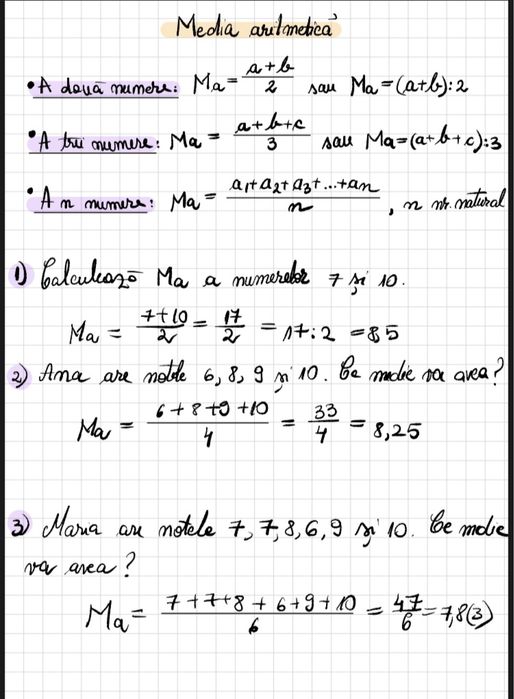 Media aritmetică
• A două numere: Ma = a+b/2 sau Ma=(a+b):2
• A trei numere: Ma = a+b+c/3 sau Ma=(a+b+c):3
• A n numere: Ma = a₁+a₂+a₃+...+an/n , n nr. natural
1) Calculează Ma a numerelor 7 și 10.
Ma = 7+10/2 = 17/2 = 17:2 = 8,5
2) Ana are notele 6, 8, 9 și 10. Ce medie va avea?
Ma = 6+8+9+10/4 = 33/4 = 8,25
3) Maria are notele 7, 7, 8, 6, 9 și 10. Ce medie
va avea?
Ma = 7+7+8+6+9+10/6 = 47/6 = 7,8(3)